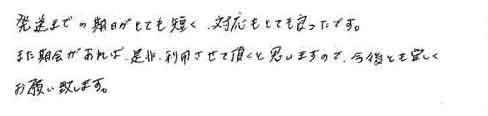 発送までの期日がとても短く、対応もとても良ったです。
また期会があれば、是非、利用させて頂くと思いますので、今後とも宜しく
お願い致します。